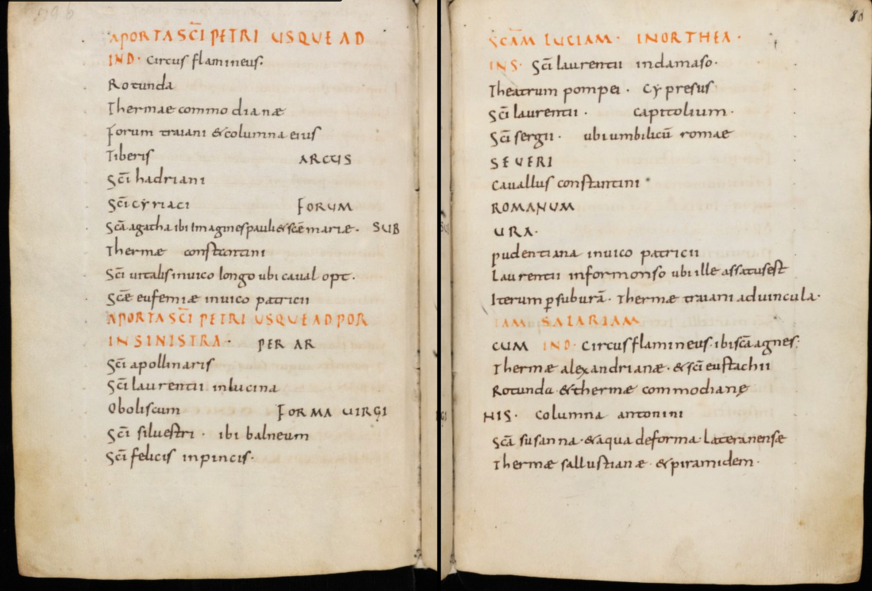 APORTA SC̄I PETRI USQUE AD
IND· Circus flamineus·
Rotunda
Thermae commodianæ
Forum traiani & columna eius
Tiberis ARCUS
Sc̄i hadriani
Sc̄i cyriaci FORUM
Sc̄a agatha ibi Imagines pauli & sc̄e mariæ· SUB
Thermæ constantini
Sc̄i uitalis inuico longo ubi caual opt·
Sc̄e eufemiæ inuico patricii
APORTA SC̄I PETRI USQUE AD POR
IN SINISTRA· PER AR
Sc̄i apollinaris
Sc̄i laurentii inlucina
Oboliscum FORMA UIRGI
Sc̄i siluestri· ibi balneum
Sc̄i felicis inpincis·
80
SC̄AM LUCIAM· INORTHEA·
INS· Sc̄i laurentii indamaso·
Theatrum pompei· Cypresus·
Sc̄i laurentii· capitolium·
Sc̄i sergii· ubi umbilicū romae
SEUERI
Cauallus constantini
ROMANUM
URA·
pudentiana inuico patricii
Laurentii informonso ubi ille assatus est
Iterum p̱ suburā· Thermæ traiani aduincula·
TAM SALARIAM
CUM IND· Circus flamineus· ibi sc̄a agnes·
Thermæ alexandrianæ· & sc̄i eustachii
Rotunda & thermæ commodianę
NIS· Columna antonini
Sc̄a susanna· & aqua deforma Lateranense
Thermæ sallustianæ & piramidem·